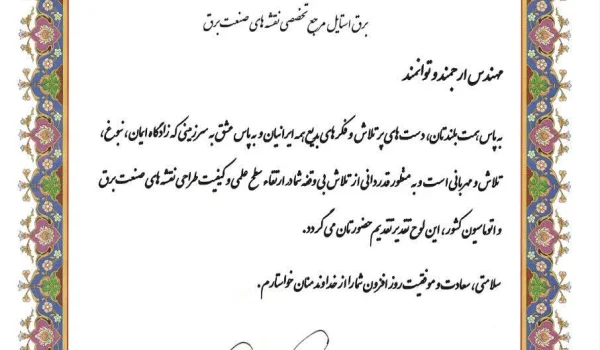 برق استایل مرجع تخصصی نقشه های صنعت برق
مهندس ارجمند و توانمند
به پاس همت بلندتان، دست های پر تلاش و فکرهای بدیع همه ایرانیان و به پاس عشق به سرزمینی که زادگاه ایمان، نبوغ،
تلاش و مهربانی است و به منظور قدردانی از تلاش بی وقفه شما در ارتقاء سطح علمی و کیفیت طراحی نقشه های صنعت برق
و اتوماسیون کشور، این لوح تقدیر تقدیم حضورتان می گردد.
سلامتی، سعادت و موفقیت روز افزون شما را از خداوند منان خواستارم.